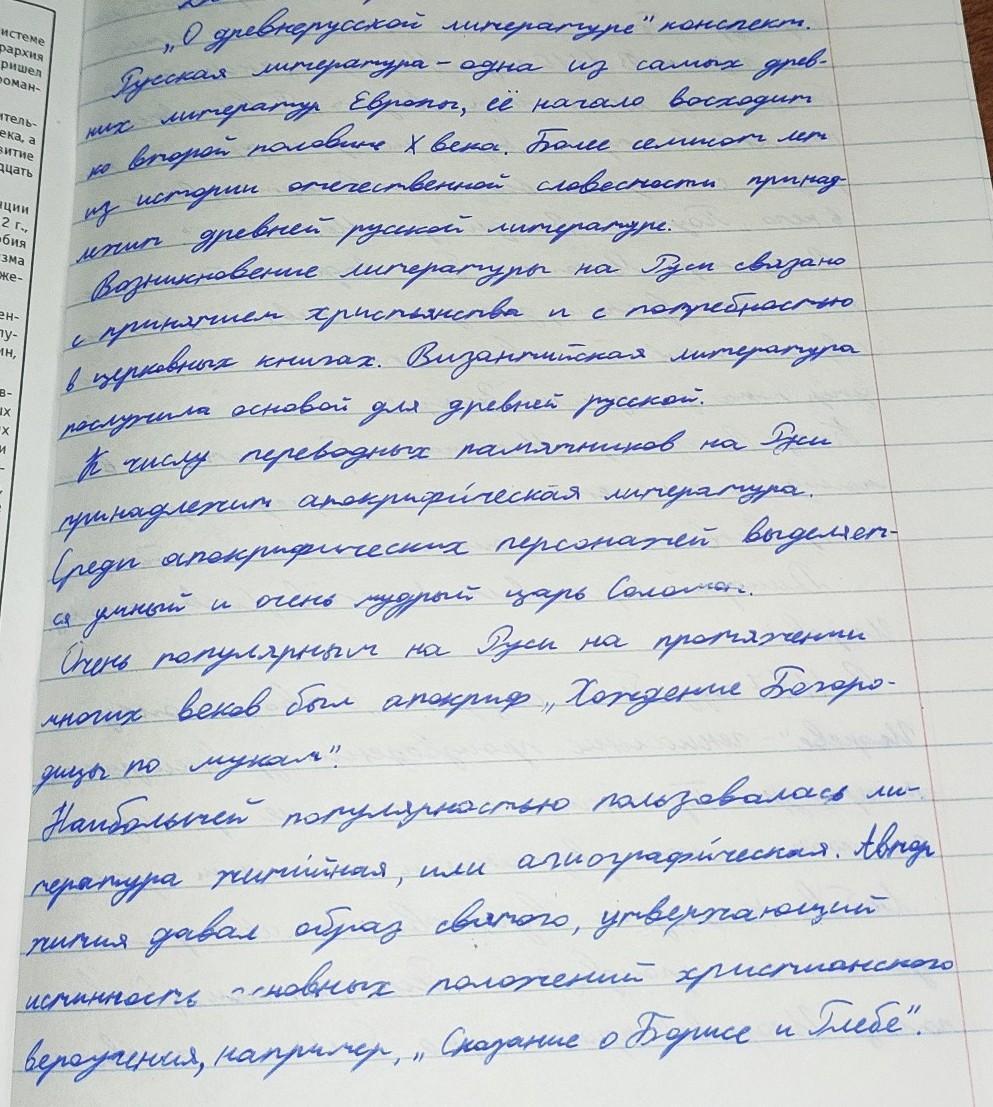 системе
рархия
ришел
оман-
итель-
ека, а
витие
дцать
нции
2 г.,
обия
изма
же-
ен-
лу-
ин,
в-
ых
их
и
„О древнерусской литературе" конспект.
Русская литература – одна из самых древ-
них литератур Европы, её начало восходит
ко второй половине X века. Более семисот лет
из истории отечественной словесности принад-
лежит древней русской литературе.
Возникновение литературы на Руси связано
с принятием христьянства и с потребностью
в церковных книгах. Византийская литература
послужила основой для древней русской.
К числу переводных памятников на Руси
принадлежит апокрифи́ческая литература.
Среди апокрифических персонажей выделяет-
ся умный и очень мудрый царь Соломон.
Очень популярным на Руси на протяжении
многих веков был апокриф „Хождение Богоро-
дицы по мукам".
Наибольшей популярностью пользовалась ли-
тература жити́йная, или агиографи́ческая. Автор
жития давал образ святого, утвержающий
истинность основных положений христианского
вероучения, например, „Сказание о Борисе и Глебе".